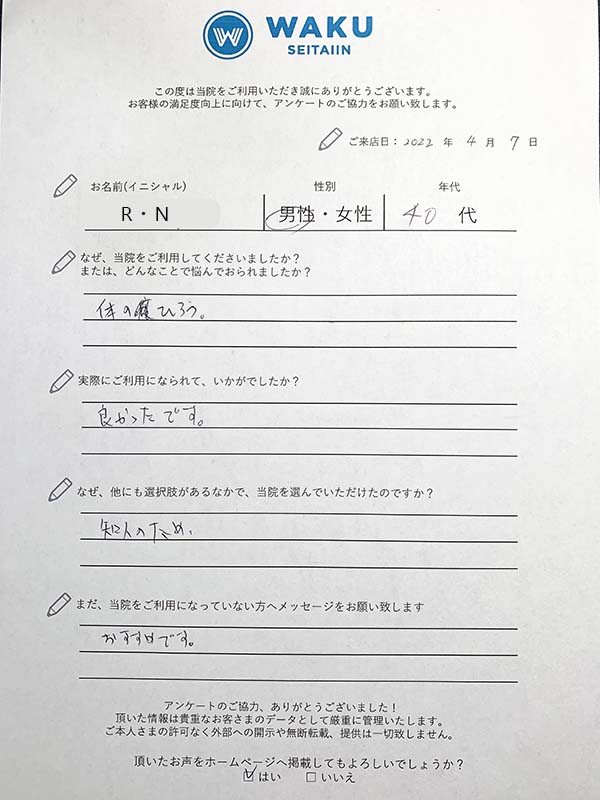 WAKU
SEITAIIN
この度は当院をご利用いただき誠にありがとうございます。
お客様の満足度向上に向けて、アンケートのご協力をお願い致します。
ご来店日：2022 年 4 月 7 日
お名前(イニシャル) 性別 年代
R・N 男性・女性 40 代
なぜ、当院をご利用してくださいましたか？
または、どんなことで悩んでおられましたか？
体の ひろう。
実際にご利用になられて、いかがでしたか？
良かったです。
なぜ、他にも選択肢があるなかで、当院を選んでいただけたのですか？
知人のため、
まだ、当院をご利用になっていない方へメッセージをお願い致します
おすすめです。
アンケートのご協力、ありがとうございました！
頂いた情報は貴重なお客さまのデータとして厳重に管理いたします。
ご本人さまの許可なく外部への開示や無断転載、提供は一切致しません。
頂いたお声をホームページへ掲載してもよろしいでしょうか？
☑はい □いいえ